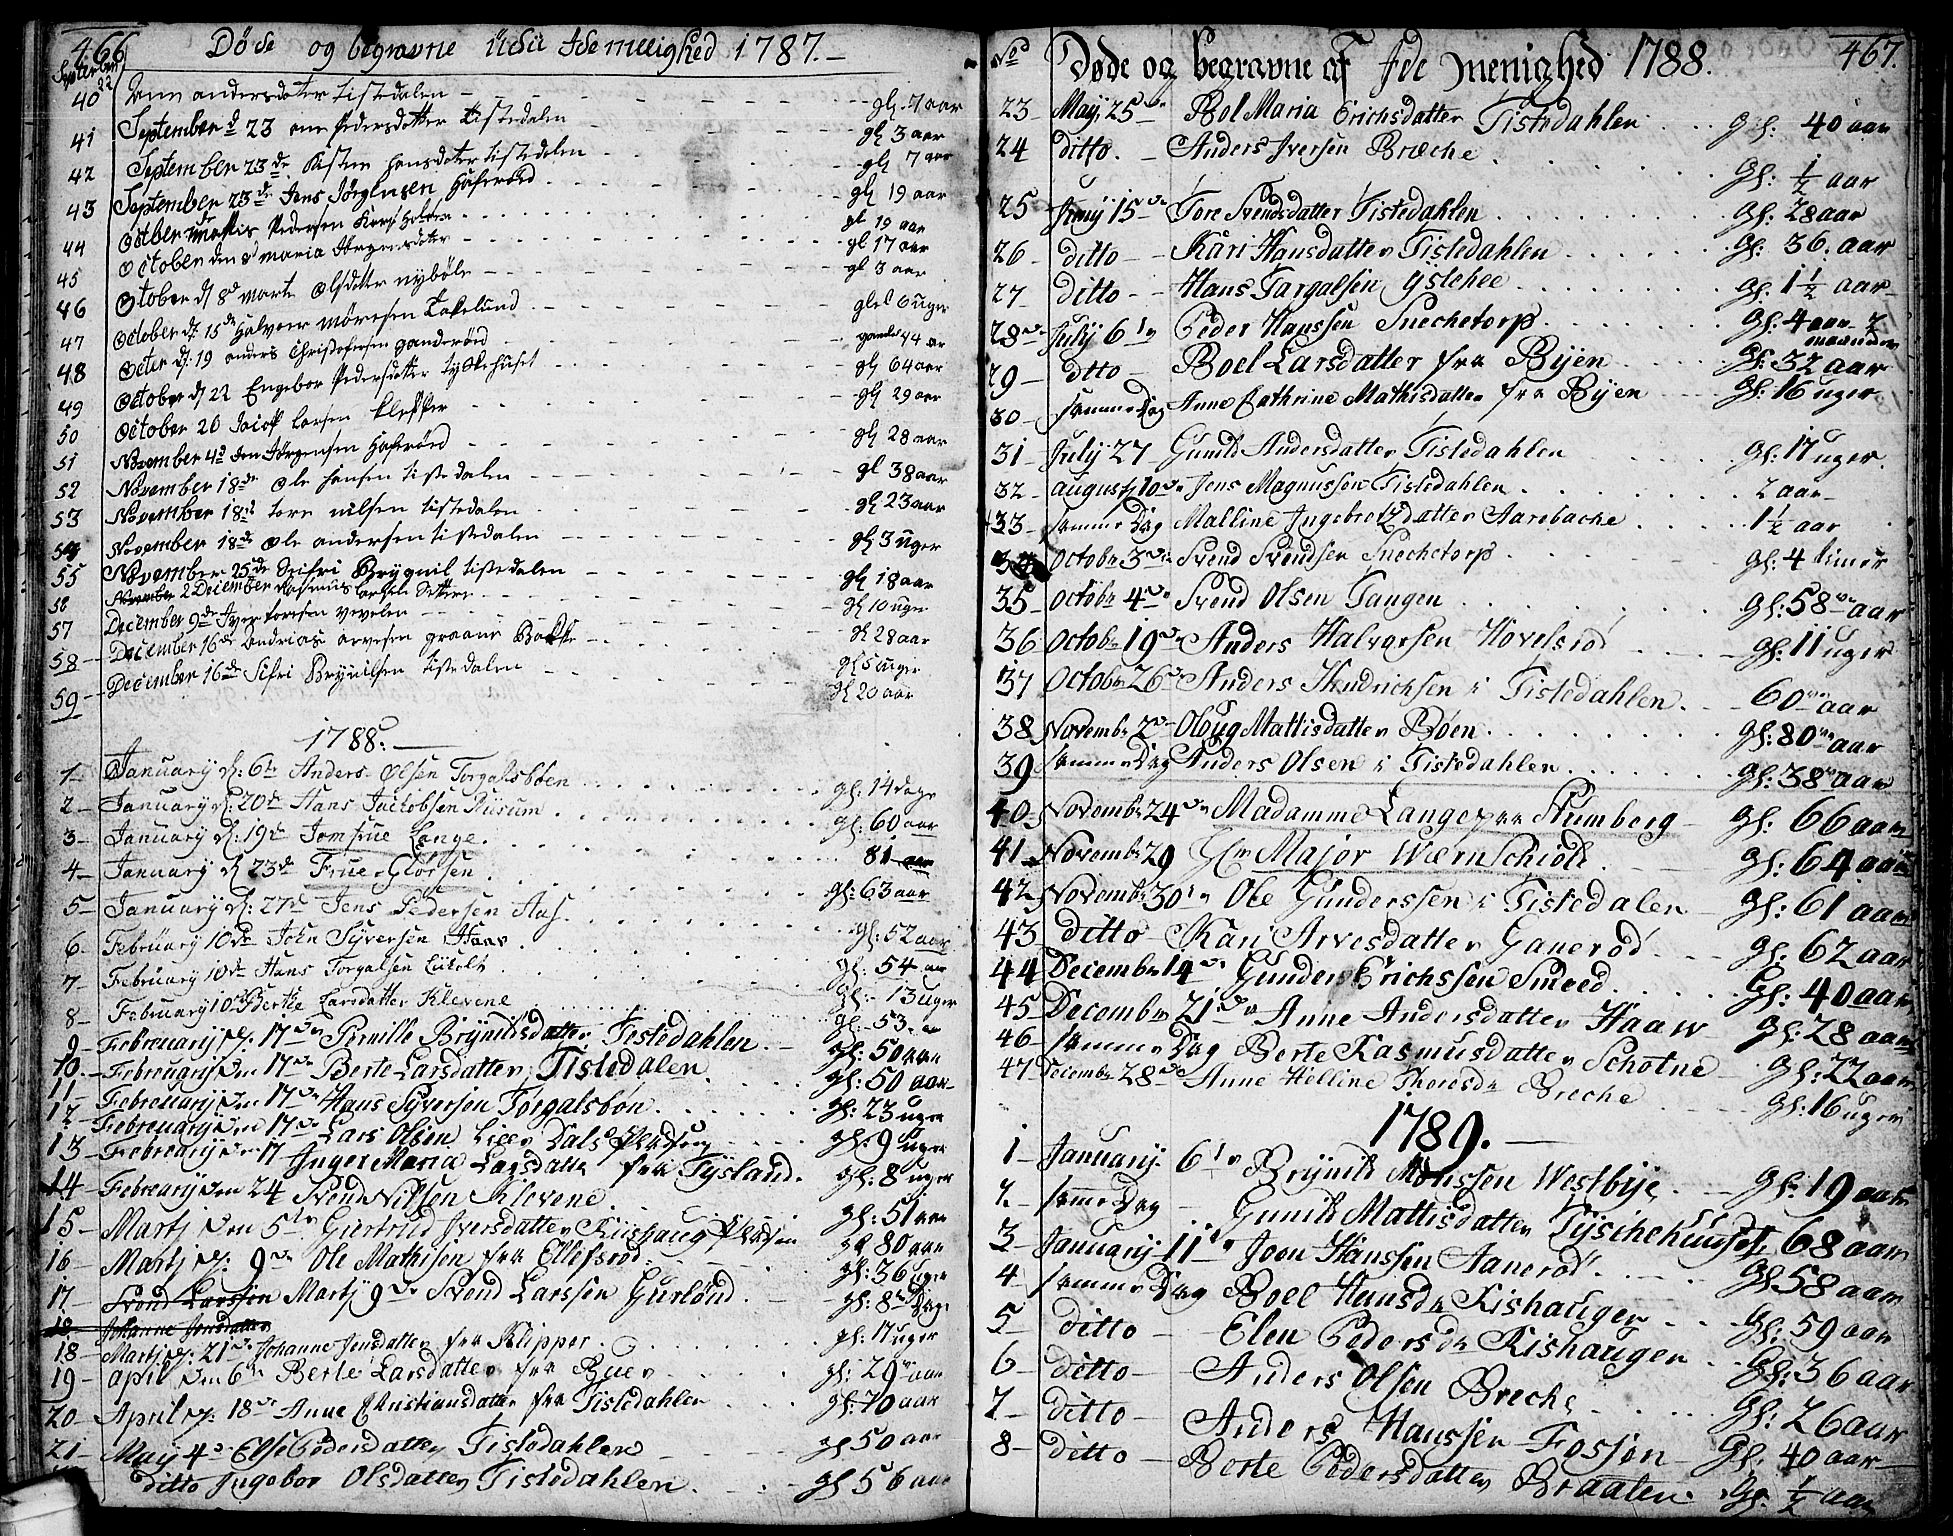 466 Døde og begravne udi Ide Menighed 1787.
September 22
40 Ann andersdater tistedalen gl 7 aar
41 September d 23 ane Pedersdatter tistedalen gl 3 aar
42 September 23 d. Kisten hansdater tistedalen gl 7 aar
43 September 23 d Jens Jørgensen Haferød gl 19 aar
44 October Mattis Pedersen gl 19 aar
45 October den 8 maria gl 17 aar
46 October d 8 d marte olsdatter nyböle gl 3 aar
47 October d. 15 de Halvoer gl 6 uger
48 October d. 19 anders Christofersen ganderød gamle 44 ar
49 October d 22 Engebor Pedersdatter tyskehuset gl 64 aar
50 October 20 Jacob Larsen klepper gl 29 aar
51 November 4 d den Jörgensen Haferød gl 28 aar
52 November 18 de ole hansen tistedalen gl 38 aar
53 November 18 d tore nilsen tistedalen gl 23 aar
54 November 18 de ole andersen tistedalen gl 3 uger
55 November 25 de tistedalen gl 18 aar
56 November 2 December gl 10 uger
57 December 9 de Iver toresen vevelen gl 28 aar
58 December 16 de andrias arvesen graane Bakke gl 5 uger
59 December 16 de Sifri Brynilsen tistedalen gl 20 aar
1788.
1 January d: 6te Anders Olsen Torgalsböen gl: 14 dage
2 January d: 20 de Hans Jackobsen Riisum gl: 60 aar
3 January d: 19 de Jomfrue Lange 81 aar
4 January d 23 de Frue Glörsen gl: 63 aar
5 January d: 27 d Jens Pedersen Aas gl: 52 aar
6 February 10 de John Syversen Haav gl: 54 aar
7 February 10 de Hans Torgalsen gl: 13 uger
8 February 10 de Berthe Larsdatter Klevene gl: 53 aar
9 Februarij d: 17 de Pernille Brynildsdatter Tistedahlen gl: 50 aar
10 Februarij den 17 de Berte Larsdatter Tistedalen gl: 50 aar
11 Februarij den 17 de Hans Syversen Torgalsbön gl: 23 uger
12 Februarij den 17 de Lars Olsen gl: 9 uger
13 Februarij den 17 Inger Maria Larsdatter fra Tysland gl: 8 uger
14 Februarij den 24 Svend Nilssen Klevene gl: 51 aar
15 Martj den 5te Giertrud Iversdatter Kiishaug gl 80 aar
16 Martj d: 9 de Ole Mathisen fra Ellefsrød gl: 36 uger
17 Svend Larssen Martj 9 de Svend Larssen Gurlönd gl: 8 Dage
18 Johanne Jensdatter
18 Martj d: 21 de Johanne Jensdatter fra Klipper gl: 17 uger
19 april den 6te Berte Larsdatter fra Buer gl: 29 aar
20 April d: 18 de Anne Christiansdatter fra Tistedahlen gl: 70 aar
21 Maij 4 de Else Pedersdatter Tistedahlen gl 50 aar
ditto Ingebor Olsdatter Tistedahlen gl 56 aar
No Døde og begravne af Ide menighed 1788. 467.
23 Maij 25 de Bol Maria Erichsdatter Tistedahlen gl: 40 aar
24 ditto Anders Iversen Bræche gl: 1/2 aar
25 Junij 15 de Tore Svendsdatter Tistedahlen gl: 28 aar
26 ditto Kari Hansdatter Tistedahlen gl: 36 aar
27 ditto Hans Targalsen ystehee gl: 1 1/2 aar
28 Julij 6te Peder Hanssen Snechetorp gl: 4 aar 2 maaneder
29 ditto Boel Larsdatter fra Byen gl: 32 aar
30 samme Dag Anne Cathrine Mathisdatter fra Byen gl: 16 uger
31 July 27 Gunild Andersdatter Tistedahlen gl: 17 uger
32 augustj 10 de Jens Magnussen Tistedahlen 2 aar
33 samme Dag Malline Ingebretzdatter Aarebache 1 1/2 aar
34 Octobr 3 de Svend Svendsen Snechetorp gl: 4 timer
35 Octobr 4 de Svend Olsen Tangen gl: 58 aar
36 Octobr 19 de Anders Halvorsen Hovelsrød gl: 11 uger
37 Octobr 26 de Anders Hendrichsen i Tistedahlen 60 aar
38 Novembr 2 de Oloug Mattisdatter Bøen gl: 80 aar
39 samme Dag Anders Olsen i Tistedahlen gl: 38 aar
40 Novembr 24 de Madamme Lange paa Stumberg gl: 66 aar
41 Novembr 29 Hr Major Wærnschiold gl: 64 aar
42 Novembr 30te Ole Gunderssen i Tistedalen gl: 61 aar
43 ditto Kari Arvesdatter Ganerød gl: 62 aar
44 Decembr 14 de Gunder Erichssen Smeed gl: 40 aar
45 Decembr 21 de Anne Andersdatter Haaw gl: 28 aar
46 samme Dag Berte Rasmusdatter Schotne gl: 22 aar
47 Decembr 28 de Anne Helline Thoresdr Breche gl: 16 uger
1789.
1 Januarij 6te Brynild Monssen Westbye gl: 19 aar
2 samme Dag Gunild Mattisdatter Tyschehuuset 68 aar
3 Januarij 11te Joen Hanssen Aanerød gl 58 aar
4 samme Dag Boel Hansdr Kishaugen gl: 59 aar
5 ditto Elen Pedersdr Kishaugen gl: 36 aar
6 ditto Anders Olsen Breche gl: 26 aar
7 ditto Anders Hanssen Fossen gl: 40 aar
8 ditto Berte Pedersdatter Braaten gl: 1/2 aar